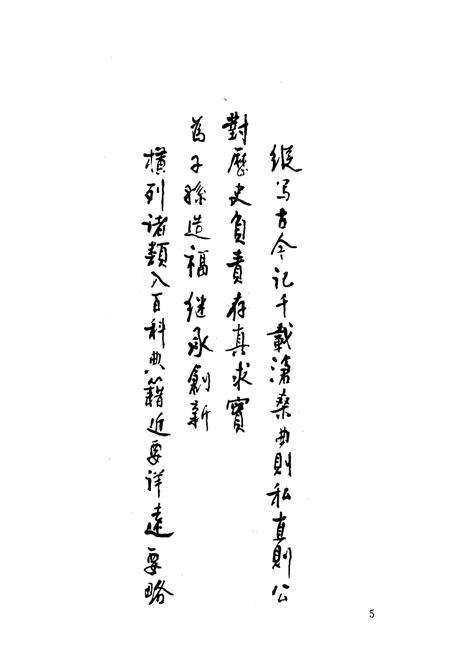 縱写古今记千載滄桑曲則私直則公
對歷史負責存真求實
為子孫造福继承創新
橫列诸類入百科典籍近要详遠要略
5